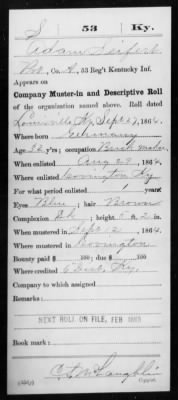 S 53 Ky.
Adam Seifert
Pvt., Co. A, 53 Reg't Kentucky Inf.
Appears on
Company Muster-in and Descriptive Roll
of the organization named above. Roll dated
Louisville Ky, Sept 27, 1864.
Where born Germany
Age 32 y'rs; occupation Brick maker
When enlisted Aug 29, 1864.
Where enlisted Covington Ky
For what period enlisted years.
Eyes Blue; hair Brown
Complexion Dk; height 5 ft. 2 in.
When mustered in Sept 12, 1864.
Where mustered in Covington
Bounty paid $ 100; due $ 100
Where credited 6 Dist, Ky.
Company to which assigned
Remarks:
NEXT ROLL ON FILE, FEB 1865
Book mark:
Copyist.